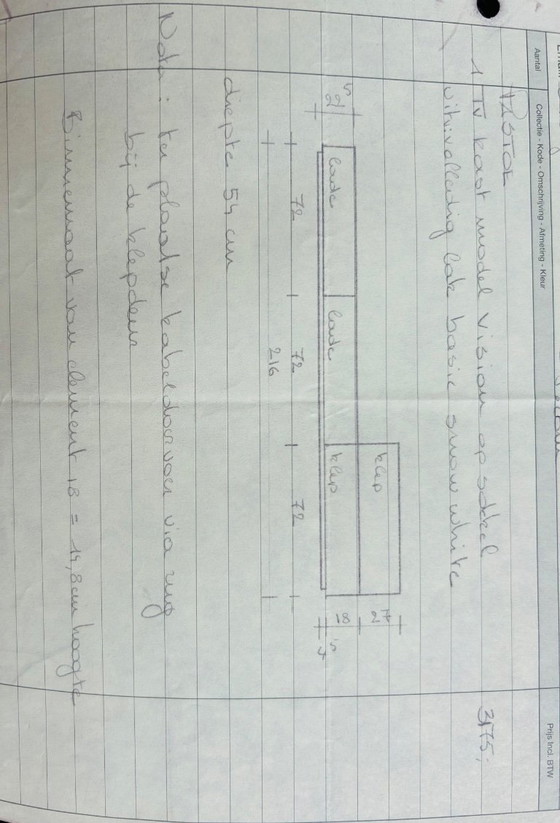 Aantal
Collectie - Kode - Omschrijving - Afmeting - Kleur
Prijs Incl. BTW
1 TV kast model vision op sokkel
3175,
uitvoering lak basic snow white
klep
27
lade
lade
klep
18
72
72
72
216
diepte 54 cm
Nota: te plaatse kabeldoorvoer via rug
bij de klepdeur
Binnenmaat van element 18 = 14,8 cm hoogte